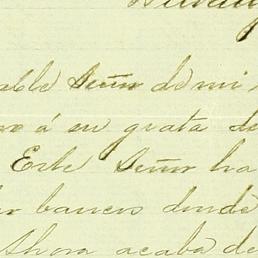 able Señor de mi
á su grata de
Este Señor ha
bancos donde
Ahora acaba de